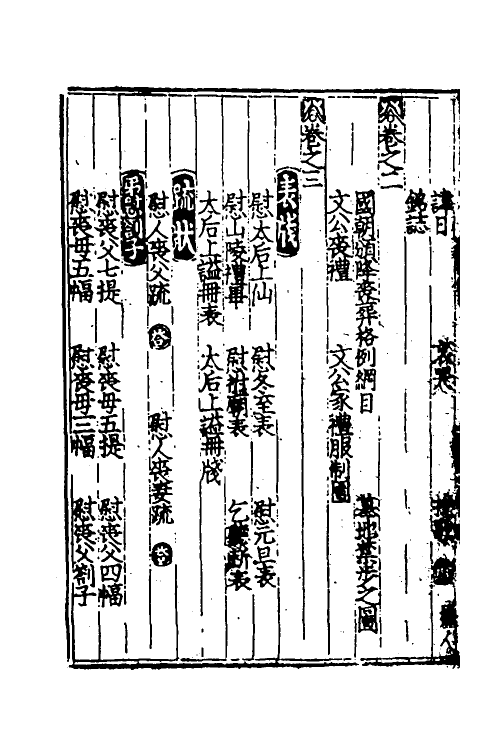 諱日
銘誌
卷之二
國朝頒降喪葬格例綱目 墓地塋步之圖
文公喪禮 文公家禮服制圖
卷之三
表牋
慰太后上仙 慰冬至表 慰元旦表
慰山陵禮畢 慰祔廟表 乞聽斷表
太后上謚冊表 太后上謚冊牋
疏狀
慰人喪父疏 答 慰人喪妻疏 答
慰喪父七提 慰喪母五提 慰喪父四幅
慰喪母五幅 慰喪母三幅 慰喪父劄子